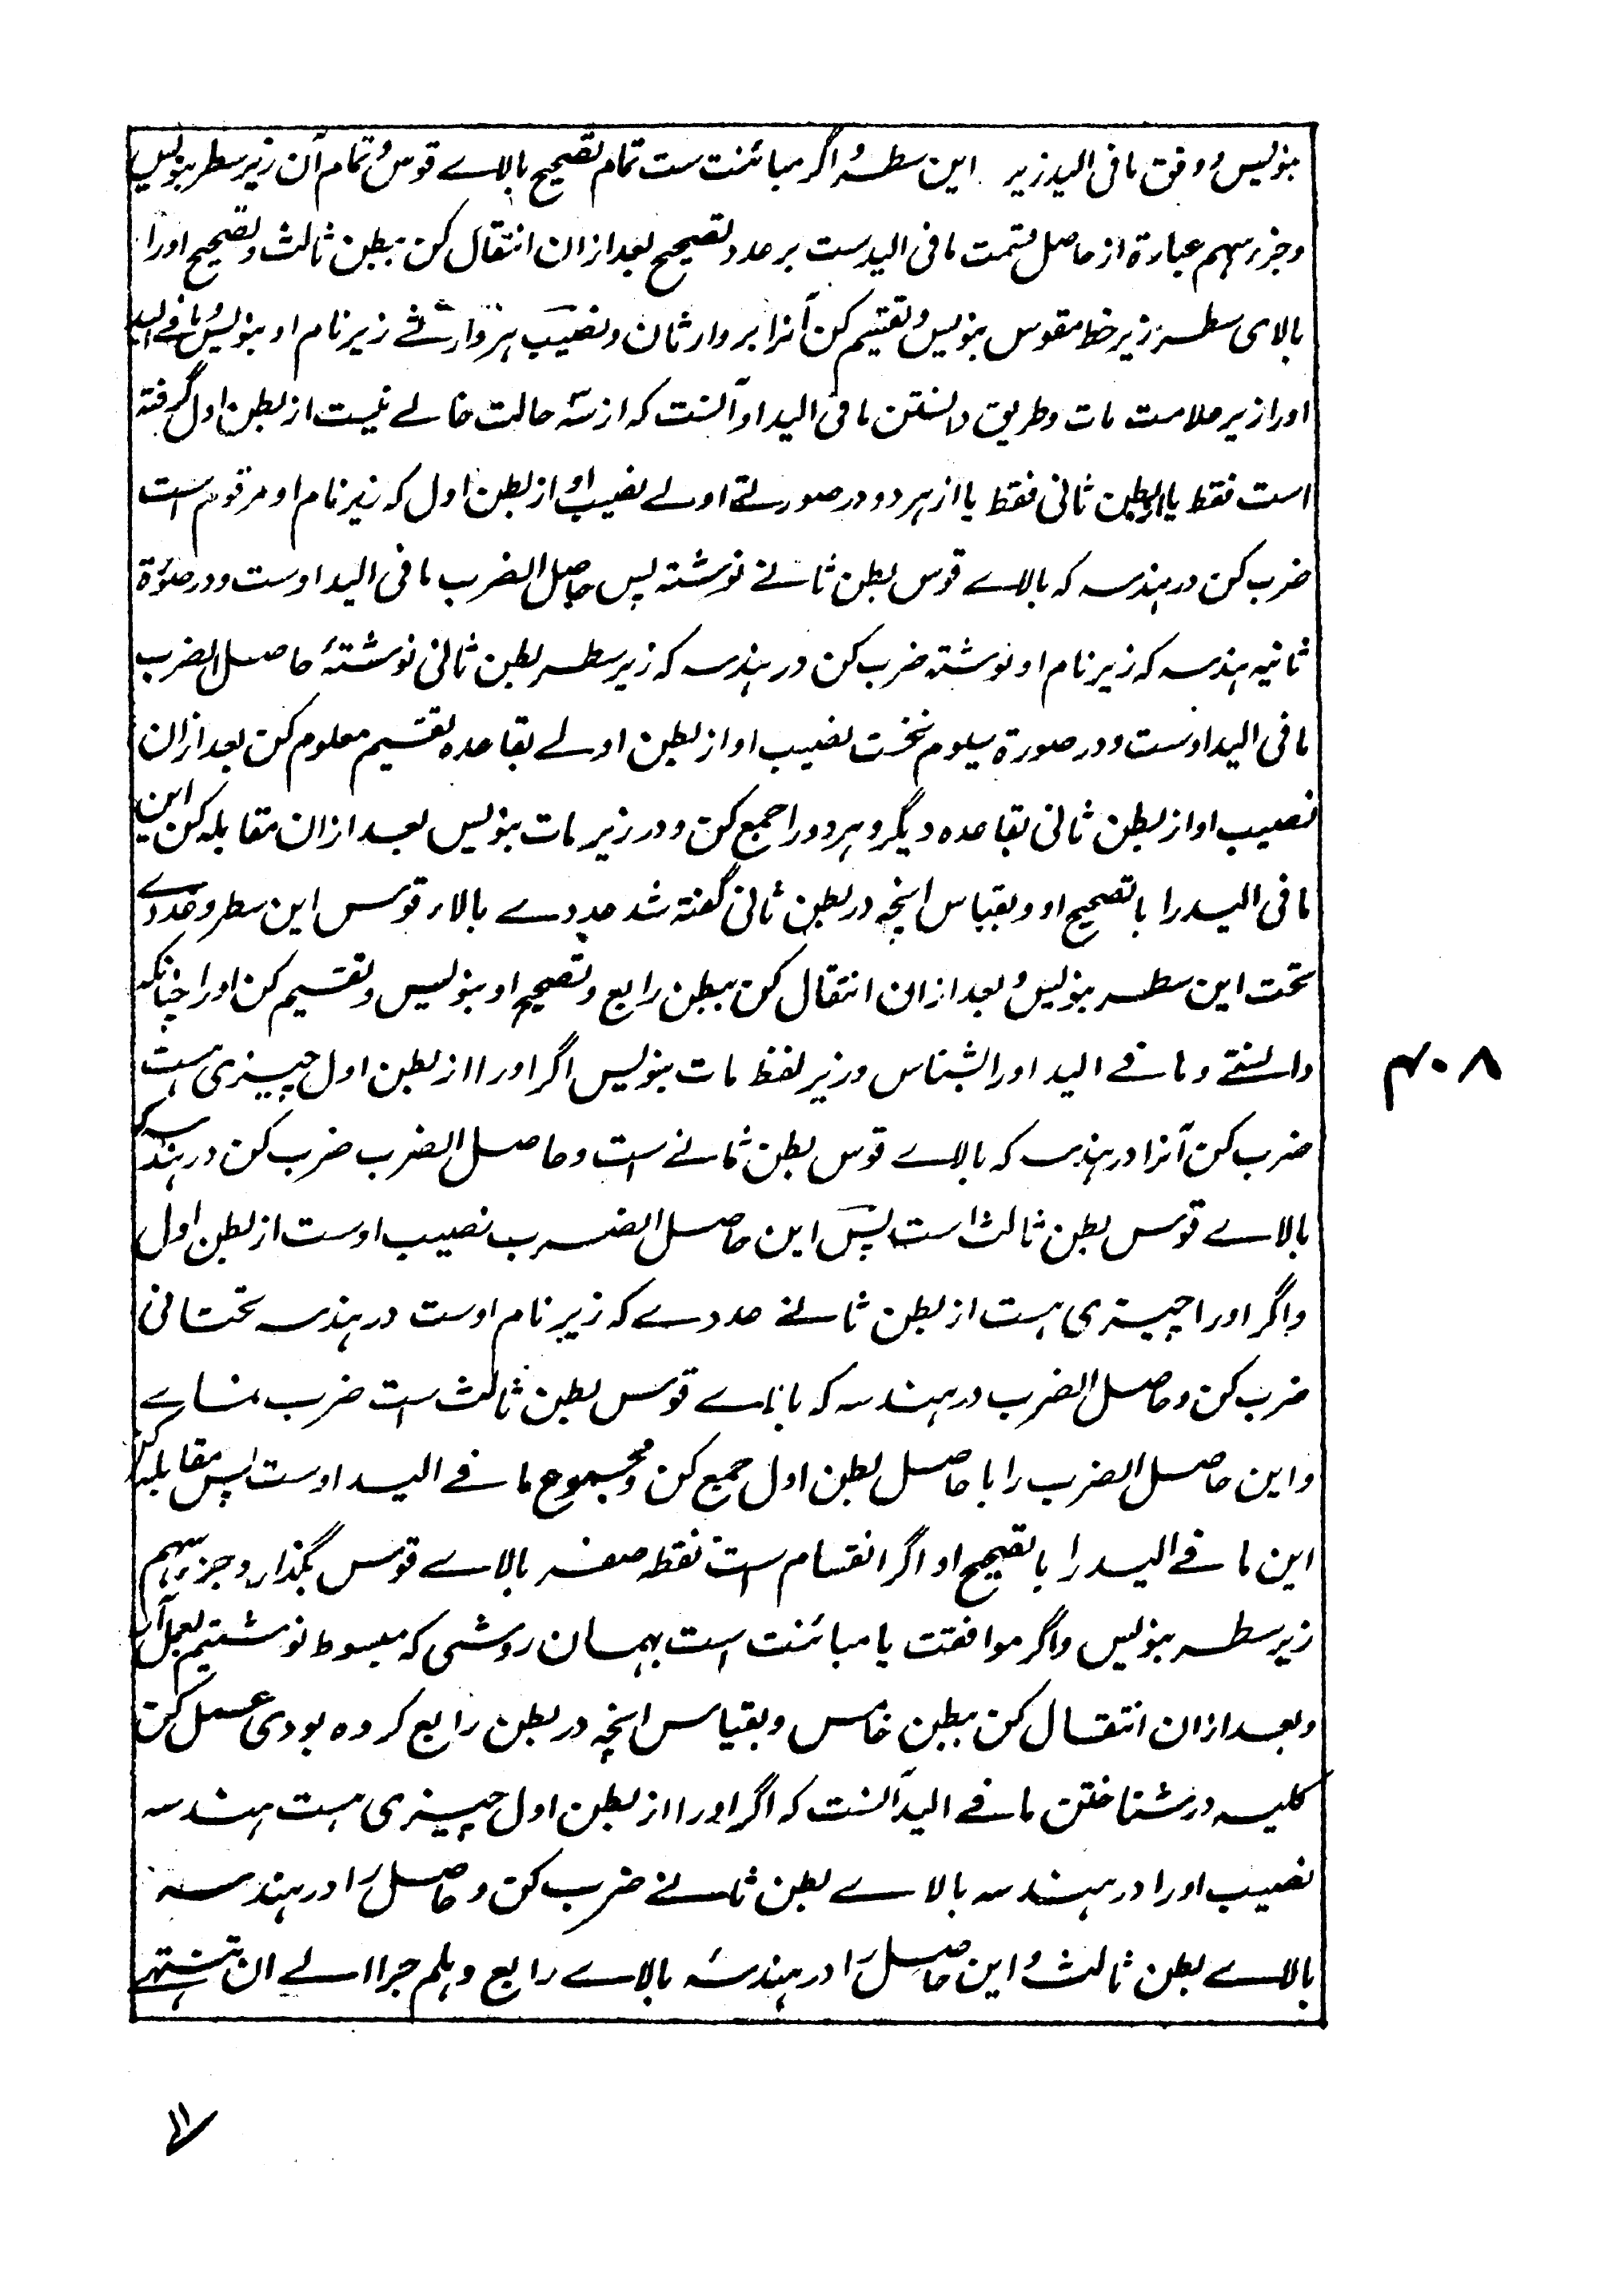 بنویس و وفق ما فی الید زیر این سطر و اگر مبائنت ست تمام تصحیح بالاے قوس و تمام آن زیر سطر بنویس
و جزء سهم عبارة از حاصل قسمت ما فی الید ست بر عدد تصحیح بعد ازان انتقال کن ببطن ثالث و تصحیح او را
بالای سطر زیر خط مقوس بنویس و تقسیم کن آنرا بر وارثان و نصیب هر وارثے زیر نام او بنویس و ما فے الید
او را زیر علامت مات و طریق دانستن ما فی الید او آنست که از سه حالت خالے نیست از بطن اول گرفته
است فقط یا از بطن ثانی فقط یا از هر دو در صورتے اولے نصیب او از بطن اول که زیر نام او مرقوم است
ضرب کن در هندسه که بالاے قوس بطن ثانے نوشته پس حاصل الضرب ما فی الید اوست و در صورة
ثانیه هندسه که زیر نام او نوشته ضرب کن در هندسه که زیر سطر بطن ثانی نوشتهٔ حاصل الضرب
ما فی الید اوست و در صورة سیوم نخست نصیب او از بطن اولے بقاعده تقسیم معلوم کن بعد ازان
نصیب او از بطن ثانی بقاعده دیگر و هر دو را جمع کن و در زیر مات بنویس بعد ازان مقابله کن این
ما فی الید را با تصحیح او و بقیاس انچه در بطن ثانی گفته شد عددے بالاء قوس این سطر و عددے
تحت این سطر بنویس و بعد ازان انتقال کن ببطن رابع و تصحیح او بنویس و تقسیم کن او را چنانکه
دانستے و ما فے الید او را بشناس و زیر لفظ مات بنویس اگر او را از بطن اول چیزی هست
ضرب کن آنرا در هندسه که بالاے قوس بطن ثانے است و حاصل الضرب ضرب کن در هندسه که
بالاے قوس بطن ثالث است پس این حاصل الضرب نصیب اوست از بطن اول
و اگر او را چیزی هست از بطن ثانے عددے که زیر نام اوست در هندسه تحتانی
ضرب کن و حاصل الضرب در هندسه که بالاے قوس بطن ثالث است ضرب نماے
و این حاصل الضرب را با حاصل بطن اول جمع کن و مجموع ما فے الید اوست پس مقابله کن
این ما فے الید را با تصحیح او اگر انقسام است نقطه صفر بالاے قوس بگذار و جزء سهم
زیر سطر بنویس و اگر موافقت یا مبائنت است بهمان روشی که مبسوط نوشتیم بعمل آر
و بعد ازان انتقال کن ببطن خامس و بقیاس انچه در بطن رابع کرده بودی عمل کن
کلیه در شناختن ما فے الید آنست که اگر او را از بطن اول چیزی هست هندسه
نصیب او را در هندسه بالاے بطن ثانے ضرب کن و حاصل را در هندسه
بالاے بطن ثالث و این حاصل را در هندسه بالاے رابع و هلم جرا الے ان تنتهے
۴۰۸